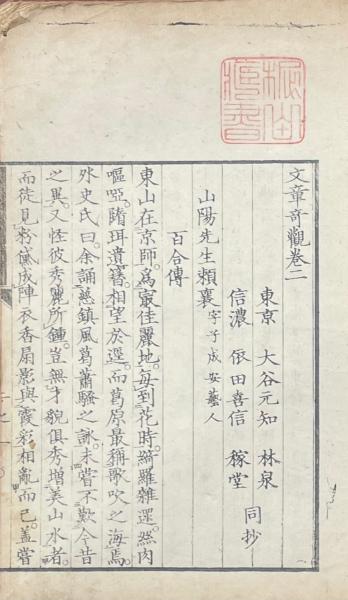 文章奇觀卷二
東京 大谷元知 林泉
信濃 依田喜信 稼堂 同抄
山陽先生頼襄字子成安藝人
百合傳
東山在京師。爲最佳麗地。每到花時。綺羅雜遝。然肉
嘔啞。隋珥遺簪。相望於逕。而葛原最稱歌吹之海焉。
外史氏曰。余誦慈鎮風葛蕭騷之詠。未嘗不歎今昔
之異。又怪彼秀麗所鍾。豈無才貌俱秀。增美山水者。
而徒見粉黛成陣。衣香扇影與霞彩相亂而已。蓋嘗